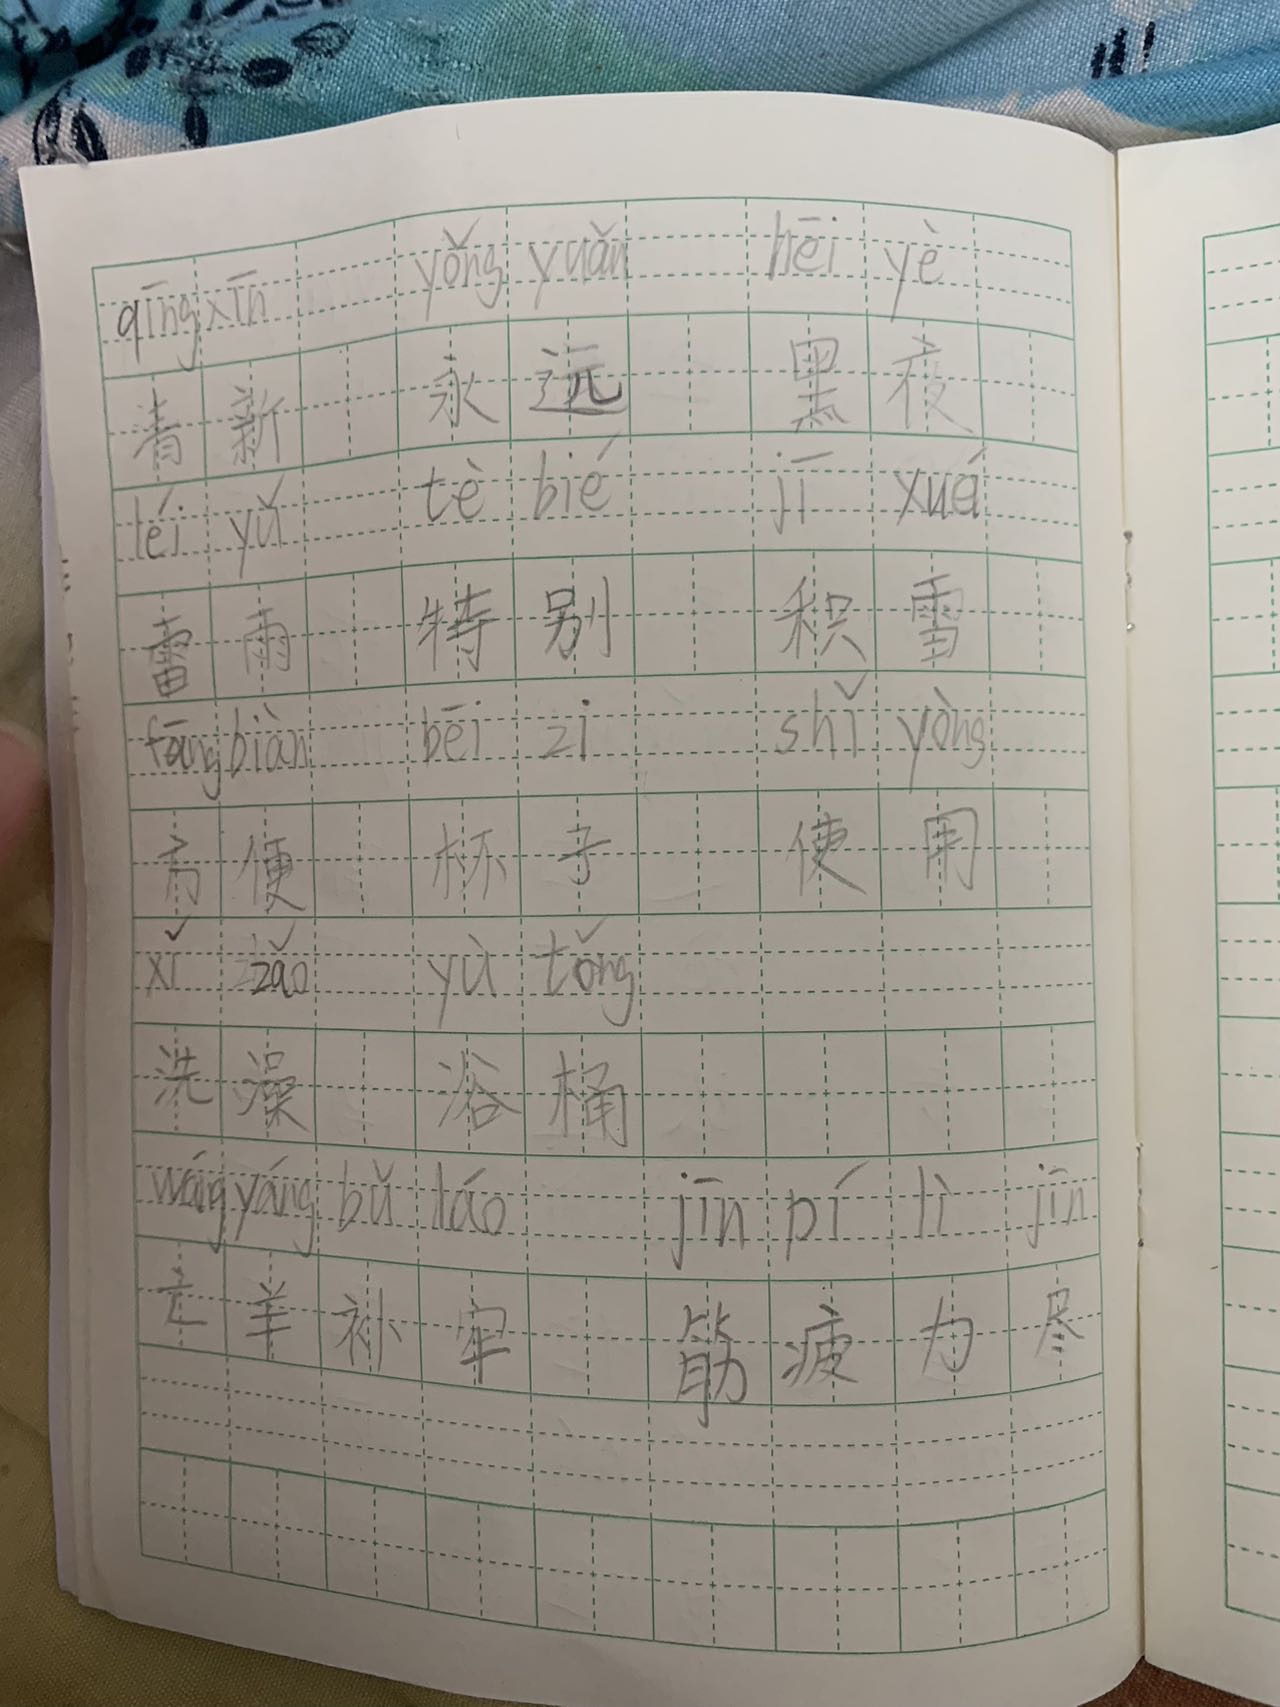 qīng xīn yǒng yuǎn hēi yè
清 新 永 远 黑 夜
léi yǔ tè bié jī xué
雷 雨 特 别 积 雪
fāng biàn bēi zi shǐ yòng
方 便 杯 子 使 用
xǐ zǎo yù tǒng
洗 澡 浴 桶
wáng yáng bǔ láo jīn pí lì jìn
亡 羊 补 牢 筋 疲 力 尽